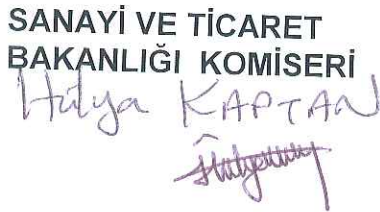 SANAYİ VE TİCARET
BAKANLIĞI KOMİSERİ
Hülya KAPTAN